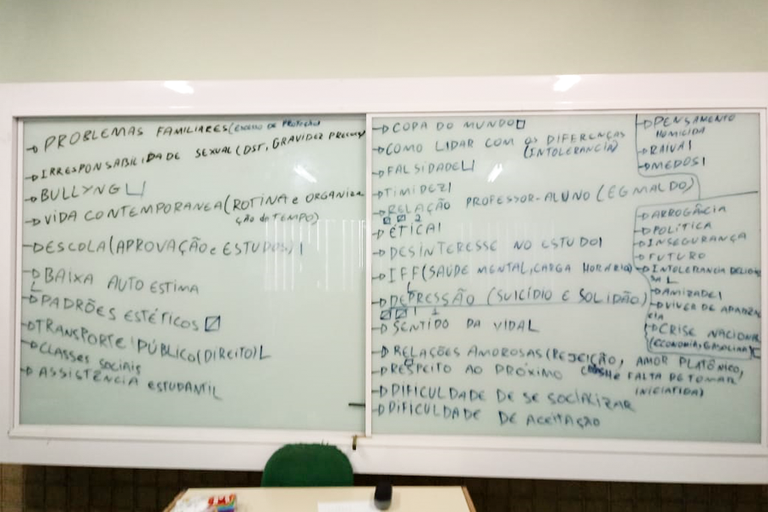 PROBLEMAS FAMILIARES (EXCESSO DE PROTEÇÃO)
IRRESPONSABILIDADE SEXUAL (DST, GRAVIDEZ
BULLYNG
VIDA CONTEMPORANEA (ROTINA e ORGANIZA
ÇÃO do TEMPO)
ESCOLA (APROVAÇÃO e ESTUDOS)
BAIXA AUTO ESTIMA
PADRÕES ESTÉTICOS
TRANSPORTE PÚBLICO (DIREITO)
CLASSES SOCIAIS
ASSISTÊNCIA ESTUDANTIL
COPA DO MUNDO
COMO LIDAR COM AS DIFERENÇAS
(INTOLERANCIA)
FALSIDADE
TIMIDEZ
RELAÇÃO PROFESSOR-ALUNO (EGMALDO)
ÉTICA
DESINTERESSE NO ESTUDO
IFF (SAÚDE MENTAL, CARGA HORÁRIA)
DEPRESSÃO (SUICÍDIO E SOLIDÃO)
SENTIDO DA VIDA
RELAÇÕES AMOROSAS (REJEIÇÃO, AMOR PLATÔNICO,
RESPEITO AO PRÓXIMO
FALTA DE TOMAR
INICIATIDA)
DIFICULDADE DE SE SOCIALIZAR
DIFICULDADE DE ACEITAÇÃO
PENSAMENTO
HOMICIDA
RAIVA
MEDOS
ARROGÂCIA
POLÍTICA
INSEGURANÇA
FUTURO
INTOLERANCIA RELIGIO
SA
AMIZADE
VIVER DE APARÊN
CIA
CRISE NACIONAL
(ECONOMIA, GASOLINA)